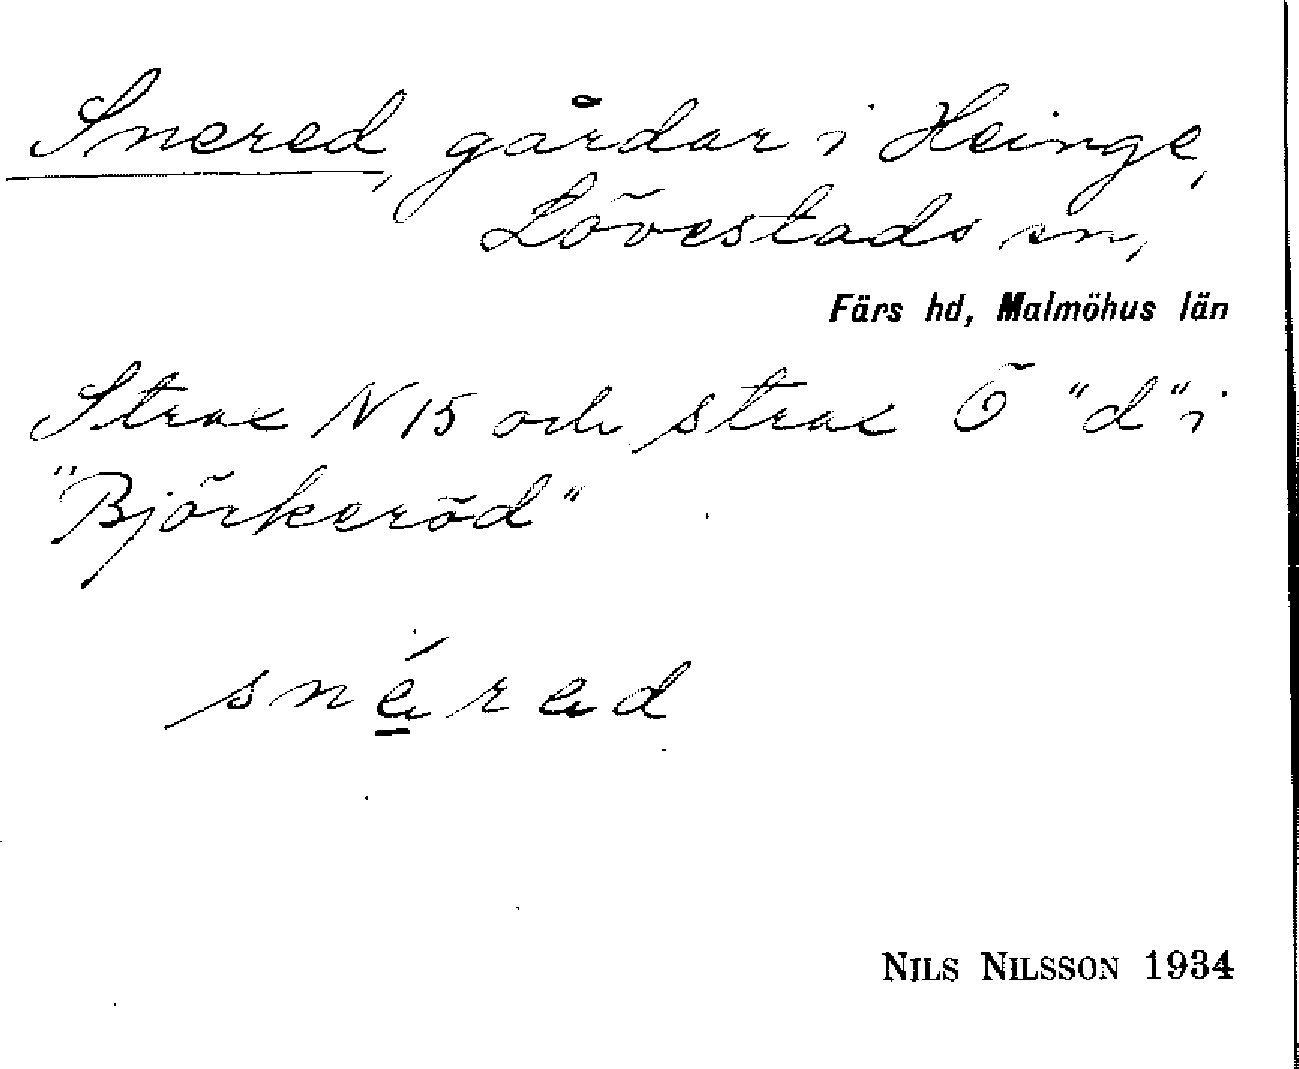 Snered, gårdar i Heinge,
Lövestads sn,
Färs hd, Malmöhus län
Strax N 15 och strax Ö "d" i
"Björkeröd"
snéred
NILS NILSSON 1934